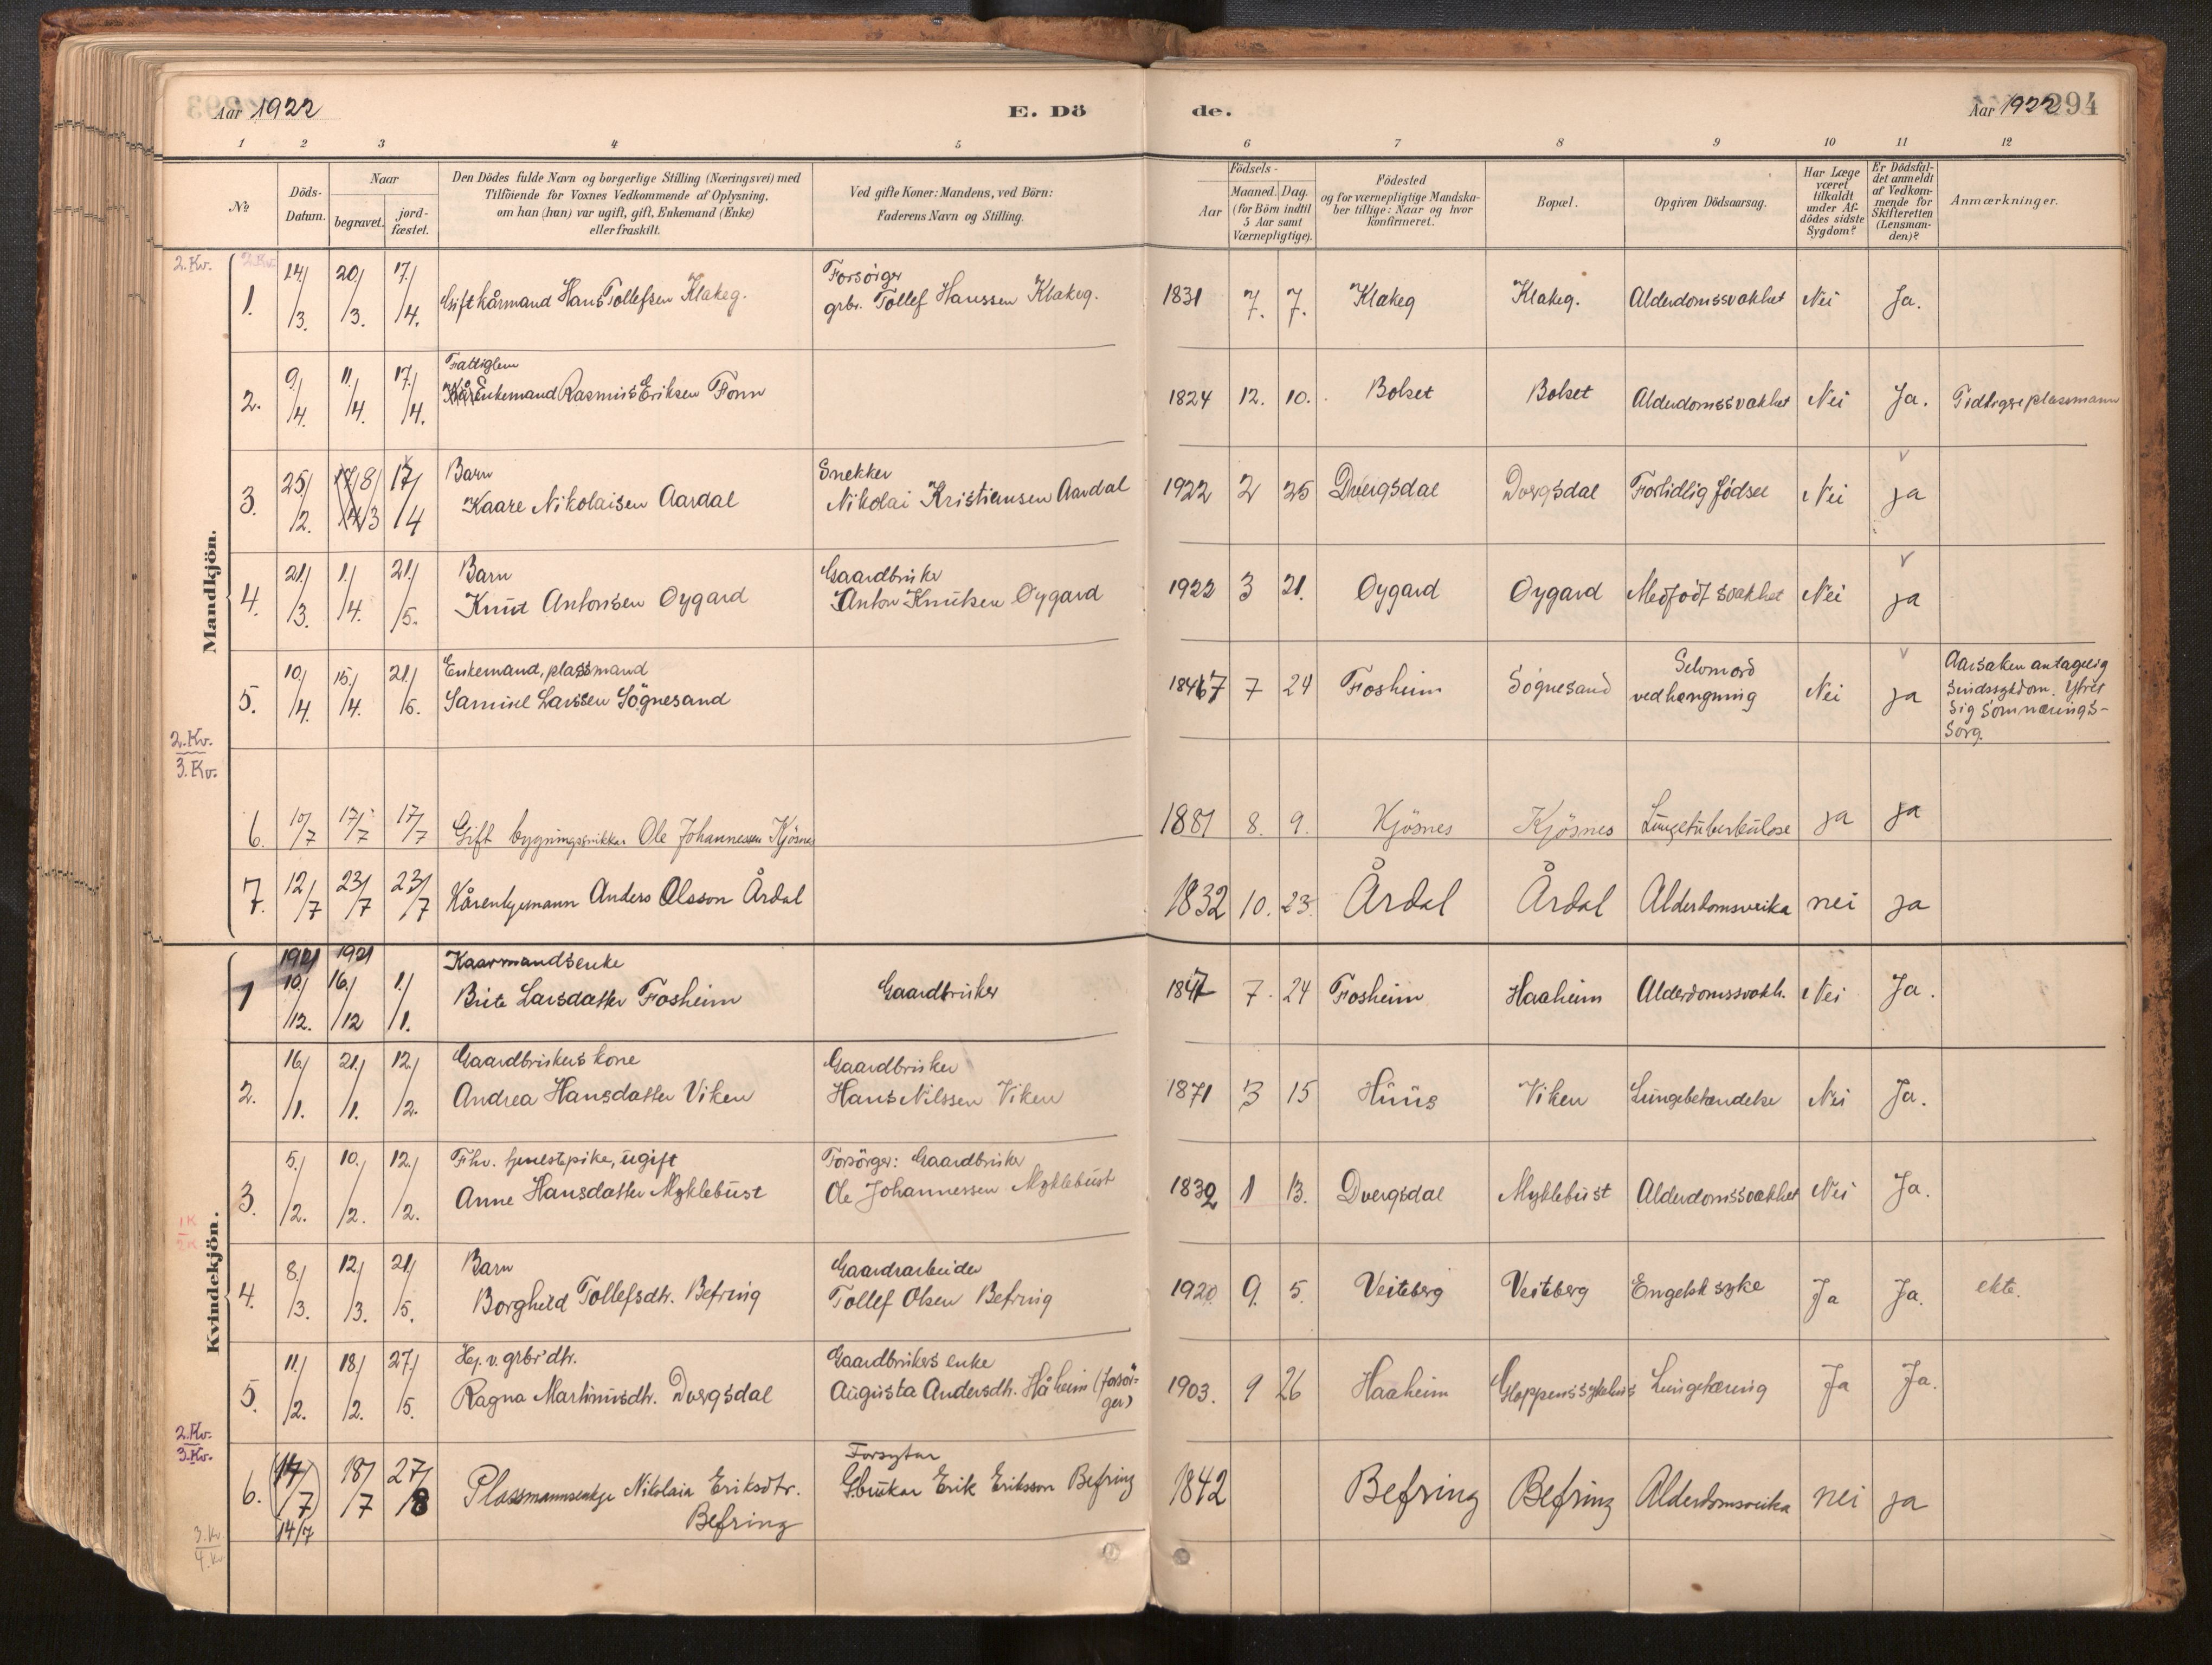 Aar 1922
E. Dö
de.
Aar 1922
294
1 2 3 4 5 6 7 8 9 10 11 12
№
Döds-Datum.
Naar
begravet.
jord-fæstet.
Den Dödes fulde Navn og borgerlige Stilling (Næringsvei) med
Tilföiende for Voxnes Vedkommende af Oplysning,
om han (hun) var ugift, gift, Enkemand (Enke)
eller fraskilt.
Ved gifte Koner: Mandens, ved Börn:
Faderens Navn og Stilling.
Födsels-
Aar
Maaned. Dag.
(for Börn indtil
5 Aar samt
Værnepligtige).
Födested
og for værnepligtige Mandska-
ber tillige: Naar og hvor
konfirmeret.
Bopæl.
Opgiven Dödsaarsag.
Har Læge
været
tilkaldt
under Af-
dödes sidste
Sygdom?
Er Dödsfal-
det anmeldt
af Vedkom-
mende for
Skifteretten
(Lensman-
den)?
Anmærkninger.
Mandkjön.
2. Kv.
1. 14/3. 20/3. 17/4. Gift kårmand Hans Tollefsen Klakeg.
Forsörger
grbr. Tollef Hanssen Klakeg.
1831 7. 7. Klakeg Klakeg. Alderdomssvakhet Nei Ja.
2. 9/4. 11/4. 17/4. Fattiglem
Enkemand Rasmus Eriksen Fonn
1824 12. 10. Bolset Bolset Alderdomssvakhet Nei Ja. Tidligere plassmann
3. 25/2. 8/3 17/4 Barn
Kaare Nikolaisen Aardal
Snekker
Nikolai Kristiansen Aardal
1922 2 25 Dvergsdal Dvergsdal Fortidlig födsel Nei ja
4. 21/3. 1/4. 21/5. Barn
Knut Antonsen Oygard
Gaardbruker
Anton Knutsen Oygard
1922 3 21. Oygard Oygard Medfödt svakhet Nei ja
5. 10/4. 15/4. 21/5. Enkemand, plassmand
Samuel Larssen Sögnesand
1847 7 24 Fosheim Sögnesand Selvmord
ved hengning Nei ja
Aarsaken antagelig
Sindssykdom. Ytret
sig som nærings-
sorg.
2. Kv.
3. Kv.
6. 10/7 17/7 17/7 Gift bygningssnikkar Ole Johannesson Kjösnes
1881 8. 9. Kjösnes Kjösnes Lungetuberkulose ja ja
7. 12/7 23/7 23/7 Kårenkjemann Anders Olsson Årdal
1832 10. 23. Årdal Årdal Alderdomsveika nei ja
Kvindekjön.
1921 1921
1 10/12. 16/12 1/1. Kaarmandsenke
Brite Larsdatter Fosheim
Gaardbruker
1847 7. 24 Fosheim Haaheim Alderdomssvakh. Nei Ja.
2. 16/1. 21/1. 12/2. Gaardbrukers kone
Andrea Hansdatter Viken
Gaardbruker
Hans Nilssen Viken
1871 3 15 Huus Viken Lungebetændelse Nei Ja.
3. 5/2. 10/2. 12/2. Fhv. tjenestpike, ugift
Anne Hansdatter Myklebust
Forsörger: Gaardbruker
Ole Johannessen Myklebust
1832 1 13. Dvergsdal Myklebust Alderdomssvakhet Nei Ja.
4. 8/3. 12/3. 21/5. Barn
Borghild Tollefsdtr. Befring
Gaardsarbeider
Tollef Olsen Befring
1920 9. 5. Veiteberg Veiteberg Engelsk syke Ja Ja. ekte.
5. 11/2. 18/2. 27/5. Hj. v. grbr' dtr.
Ragna Martinusdtr. Dvergsdal
Gaardbrukers enke
Augusta Andersdtr. Håheim (forsör-
ger)
1903. 9 26 Haaheim Gloppens sykehus Lungetæring Ja Ja.
2. Kv.
3. Kv.
6. 14/7 18/7 27/8 Plassmannsenkje Nikolaia Eriksdtr.
Befring
14/7
Forsytar
Gbrukar Erik Eriksson Befring
1842 Befring Befring Alderdomsveika nei ja
3. Kv.
4. Kv.